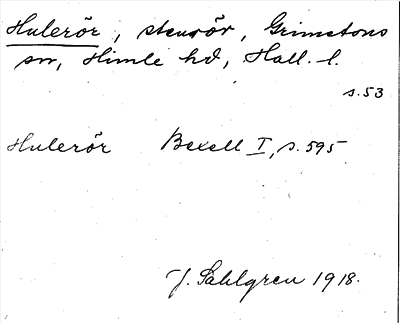 Hulerör, stenrör, Grimetons
sn, Himle hd, Hall. l.
s. 53
Hulerör Bexell I, s. 595
J. Sahlgren 1918.